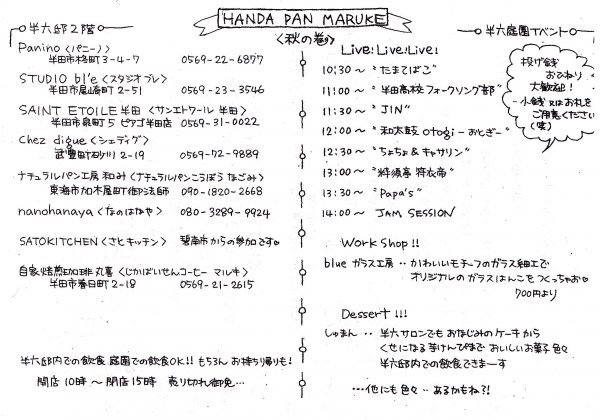 HANDA PAN MARUKE
〈秋の巻〉
半六邸2階
Panino〈パニーノ〉
半田市柊町3-4-7 0569-22-6877
STUDIO bl'e〈スタジオ ブレ〉
半田市尾﨑町2-51 0569-23-3546
SAINT ETOILE 半田〈サンエトワール 半田〉
半田市泉町5 ピアゴ半田店 0569-31-0022
Chez digue〈シェディグ〉
武豊町砂川2-19 0569-72-9889
ナチュラルパン工房 和み〈ナチュラルパンこうぼう なごみ〉
東海市加木屋町御法師 090-1820-2668
nanohanaya〈なのはなや〉 080-3289-9924
SATOKITCHEN〈さとキッチン〉 碧南市からの参加です
自家焙煎珈琲 丸喜〈じかばいせんコーヒー マルキ〉
半田市春日町2-18 0569-21-2615
半六邸内での飲食 庭園での飲食OK!! もちろん お持ち帰りも!
開店10時〜閉店15時 売り切れ御免…
半六庭園イベント
Live! Live! Live!
10:30〜 "たまてばこ"
11:00〜 "半田高校 フォークソング部"
11:30〜 "JIN"
12:00〜 "和太鼓 otogi-おとぎ-"
12:30〜 "ちょちょ&キャサリン"
13:00〜
13:30〜 "Papa's"
14:00〜 JAM SESSION
投げ銭
おひねり
大歓迎!
小銭 又は お札を
ご用意ください
(笑)
Work Shop!!
blue ガラス工房 ‥ かわいいモチーフのガラス細工で
オリジナルのガラスはんこをつくっちゃお
700円より
Dessert!!!
しゅまん ‥ 半六サロンでも おなじみの ケーキから
くせになる芋けんぴまで おいしいお菓子 色々
半六邸内での飲食できまーす
…他にも色々‥あるかもね?!